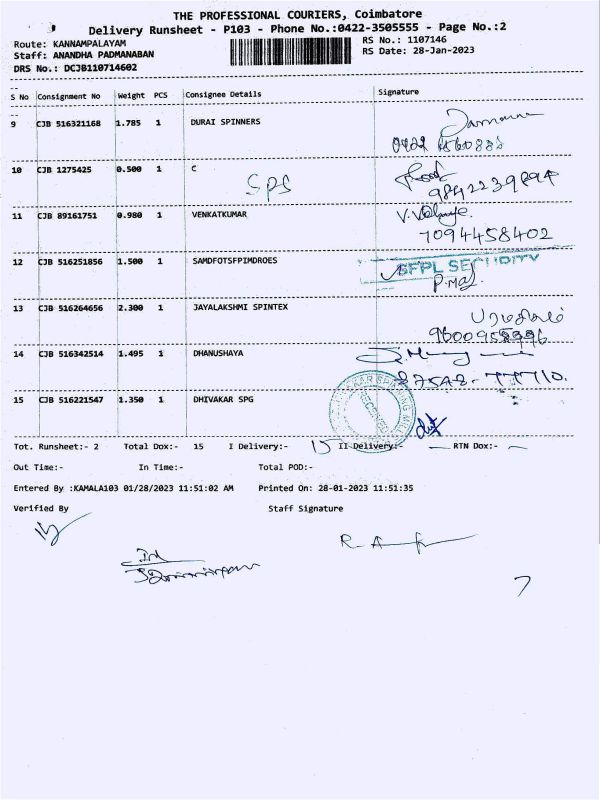 THE PROFESSIONAL COURIERS, Coimbatore
Delivery Runsheet - P103 - Phone No.:0422-3505555 - Page No.:2
Route: KANNAMPALAYAM RS No.: 1107146
Staff: ANANDHA PADMANABAN RS Date: 28-Jan-2023
DRS No.: DCJB110714602
S No Consignment No Weight PCS Consignee Details Signature
9 CJB 516321168 1.785 1 DURAI SPINNERS
10 CJB 1275425 0.500 1 C
SPS
9842239894
11 CJB 89161751 0.980 1 VENKATKUMAR
7094458402
12 CJB 516251856 1.500 1 SAMDFOTSFPIMDROES
SFPL SECURITY
13 CJB 516264656 2.300 1 JAYALAKSHMI SPINTEX
14 CJB 516342514 1.495 1 DHANUSHAYA
15 CJB 516221547 1.350 1 DHIVAKAR SPG
Tot. Runsheet:- 2 Total Dox:- 15 I Delivery:- 15 II Delivery:- — RTN Dox:- —
Out Time:- In Time:- Total POD:-
Entered By :KAMALA103 01/28/2023 11:51:02 AM Printed On: 28-01-2023 11:51:35
Verified By Staff Signature